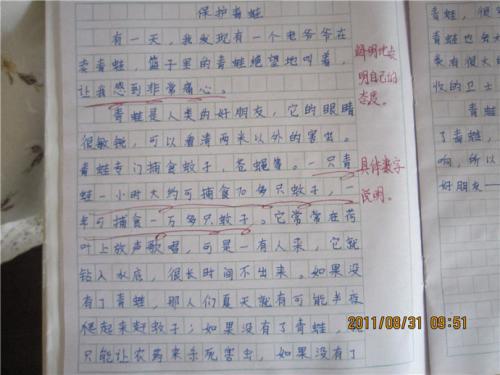 保护青蛙
有一天，我发现有一个老爷爷在
卖青蛙，笼子里的青蛙绝望地叫着，
让我感到非常痛心。
青蛙是人类的好朋友，它的眼睛
很敏锐，可以看清两米以外的害虫。
青蛙专门捕食蚊子，苍蝇等。一只青
蛙一小时大约可捕食70多只蚊子，一
年可捕食一万多只蚊子。它常常在荷
叶上放声歌唱，可是一有人来，它就
钻入水底，很长时间不出来。如果没
有了青蛙，那人们夏天就有可能半夜
爬起来赶蚊子；如果没有了青蛙，
只能让农药来杀死害虫，如果没有了
鲜明地表
明自己的
态度。
具体数字
说明。
青蛙，很
青蛙也
来有很大的
收的卫士
青蛙
了青蛙，
响，所以
好朋友一
2011/08/31 09:51